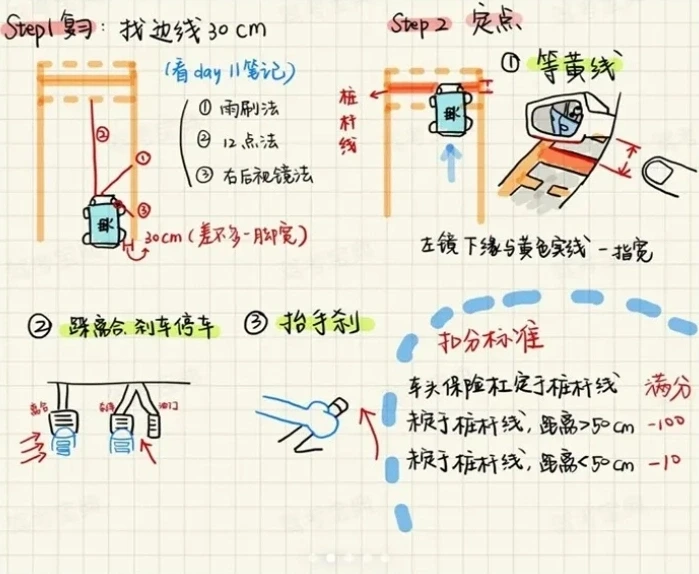 Step1 复习：找边线30cm
(看day 11笔记)
① 雨刷法
② 12点法
③ 右后视镜法
②
①
③
果
30cm(差不多一脚宽)
Step2 定点
① 等黄线
桩杆线
果
左镜下缘与黄色实线一指宽
② 踩离合.刹车停车
离合
刹车
油门
③ 抬手刹
扣分标准
车头保险杠定于桩杆线 满分
未定于桩杆线，距离>50cm -100
未定于桩杆线，距离<50cm -10